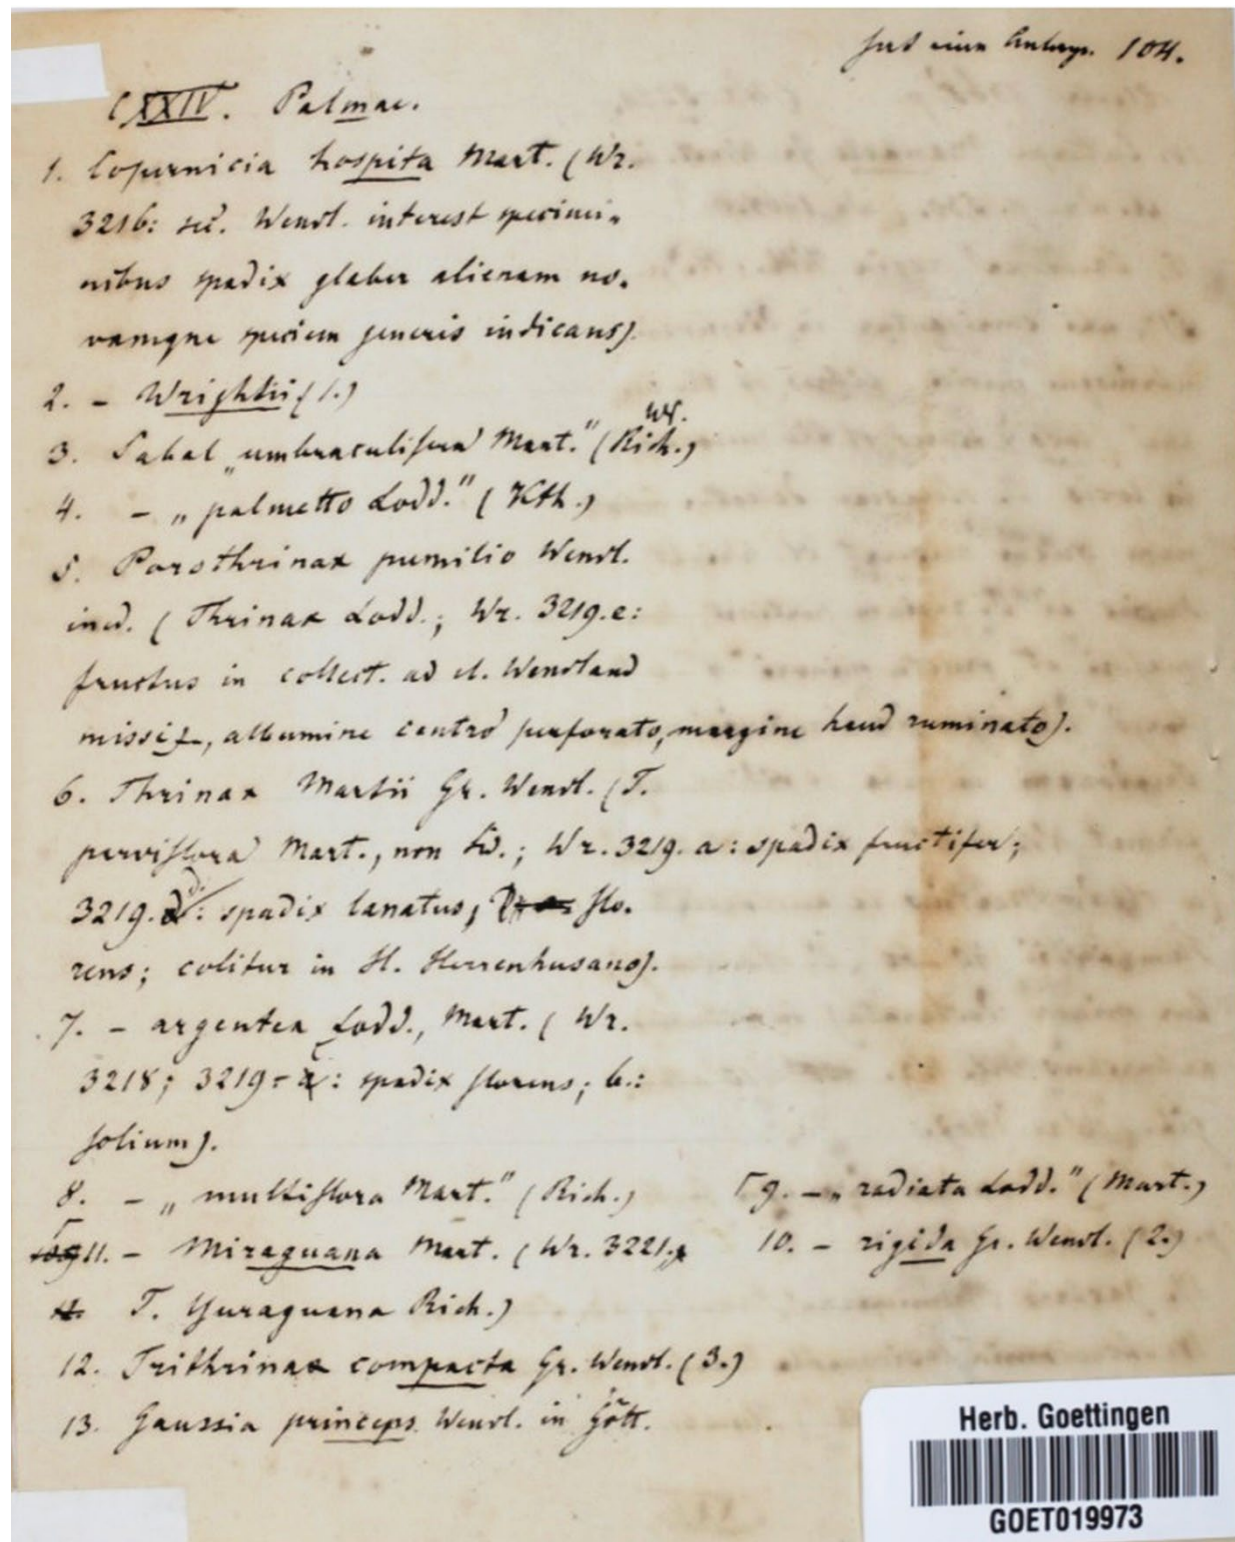 104.
CXXIV. Palmae.
1. Copernicia hospita Mart. (Wr.
3216: sec. Wendl. interest specimi-
nibus spadix glaber alienam no-
vamque speciem generis indicans).
2. - Wrightii (1.)
3. Sabal „umbraculifera Mart." (Rich.)
4. - „palmetto Lodd." (Kth.)
5. Porothrinax pumilio Wendl.
ined. (Thrinax Lodd.; Wr. 3219.e:
fructus in collect. ad cl. Wendland
missi, albumine centro perforato, margine haud ruminato).
6. Thrinax Martii Gr. Wendl. (T.
parviflora Mart., non Sw.; Wr. 3219. a: spadix fructifer;
3219. d: spadix lanatus, flo-
rens; colitur in H. Herrenhusano).
7. - argentea Lodd., Mart. (Wr.
3218; 3219 c: spadix florens; b.:
folium).
8. - „multiflora Mart." (Rich.)
9. - „radiata Lodd." (Mart.)
10. - rigida Gr. Wendl. (2.)
11. - Miraguana Mart. (Wr. 3221.
T. Yuraguana Rich.)
12. Trithrinax compacta Gr. Wendl. (3.)
13. Gaussia princeps Wendl. in Gött.
Herb. Goettingen
GOET019973